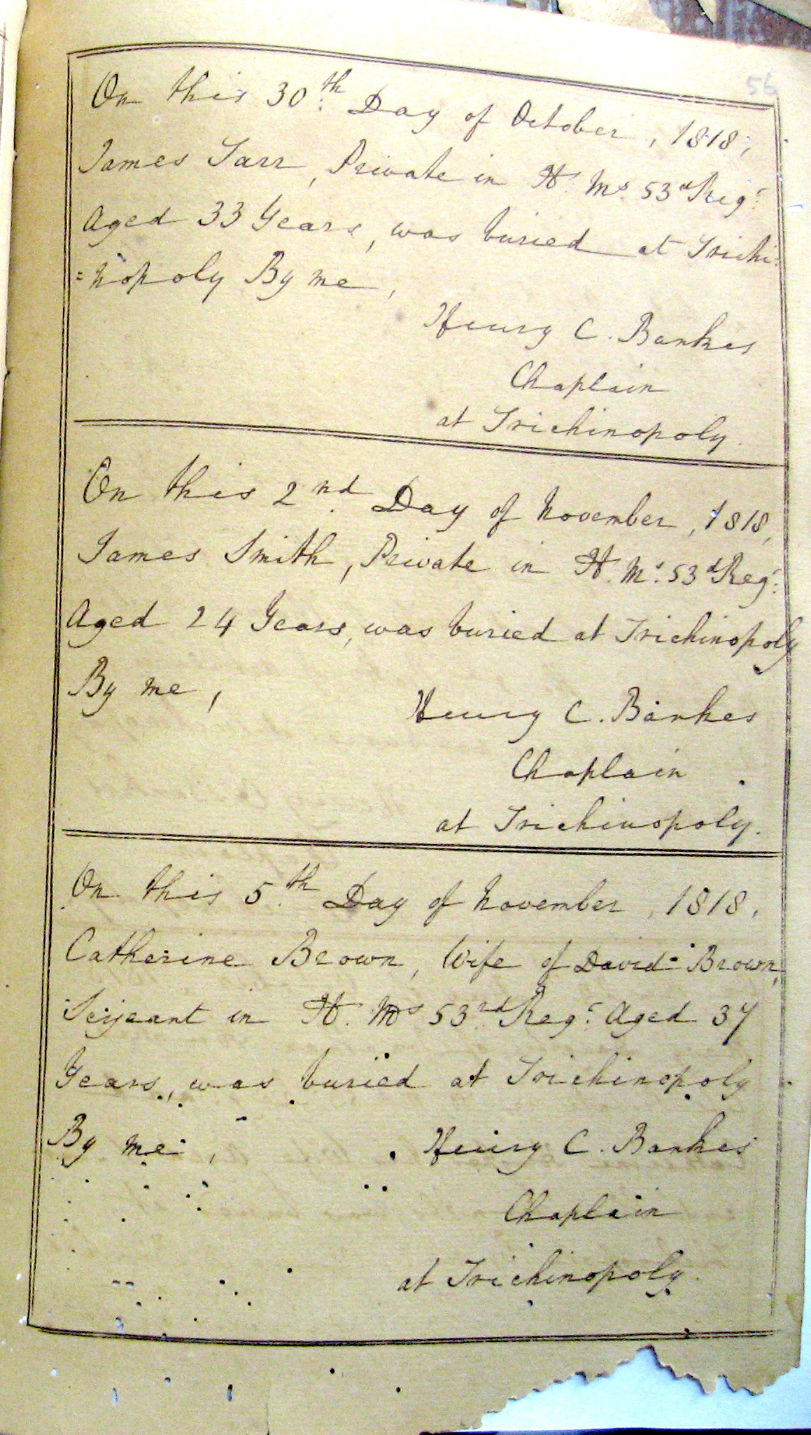 56
On this 30th Day of October, 1818,
James Tarr, Private in H. Ms. 53d Regt.
Aged 33 Years, was buried at Trichi-
=nopoly By me,
Henry C. Bankes
Chaplain
at Trichinopoly.
On this 2nd Day of November, 1818,
James Smith, Private in H. Ms. 53d Regt.
Aged 24 Years, was buried at Trichinopoly
By me,
Henry C. Bankes
Chaplain
at Trichinopoly.
On this 5th Day of November, 1818,
Catherine Brown, Wife of David Brown,
Serjeant in H. Ms 53rd Regt. Aged 37
Years, was buried at Trichinopoly
By me,
Henry C. Bankes
Chaplain
at Trichinopoly.